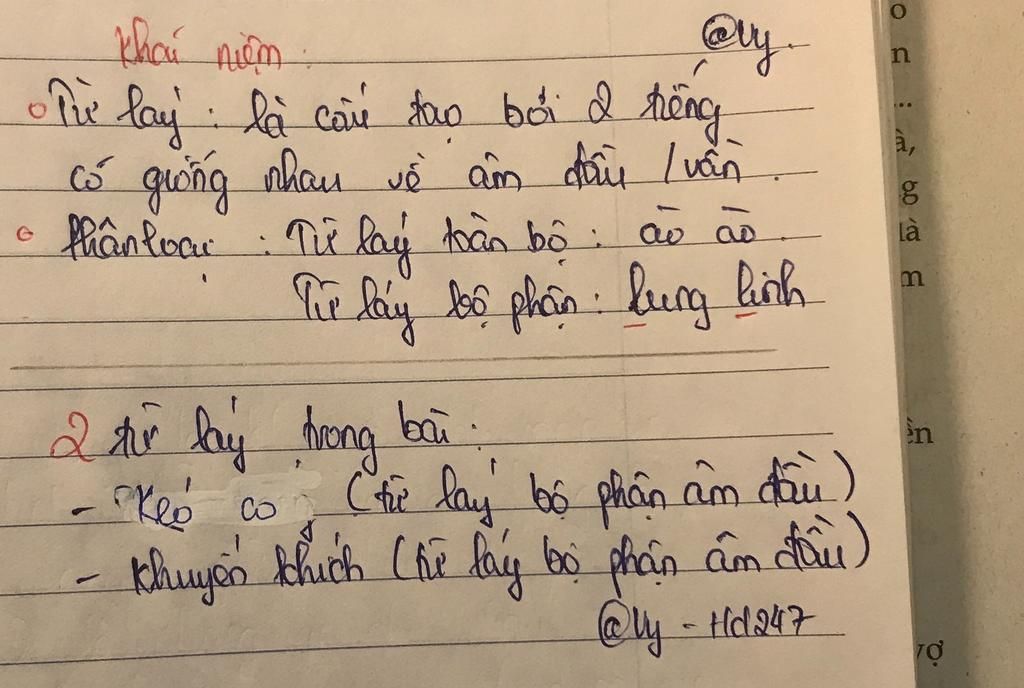 Khái niệm :
@Vy.
Từ láy : là cấu tạo bởi 2 tiếng
có giống nhau về âm đầu / vần.
Phân loại : Từ láy toàn bộ : ào ào
Từ láy bộ phận : lung linh
2 từ láy trong bài :
- Kéo co (từ láy bộ phận âm đầu)
- Khuyến khích (từ láy bộ phận âm đầu)
@Vy - Hd247
o
n
...
à,
g
là
m
ền
vợ